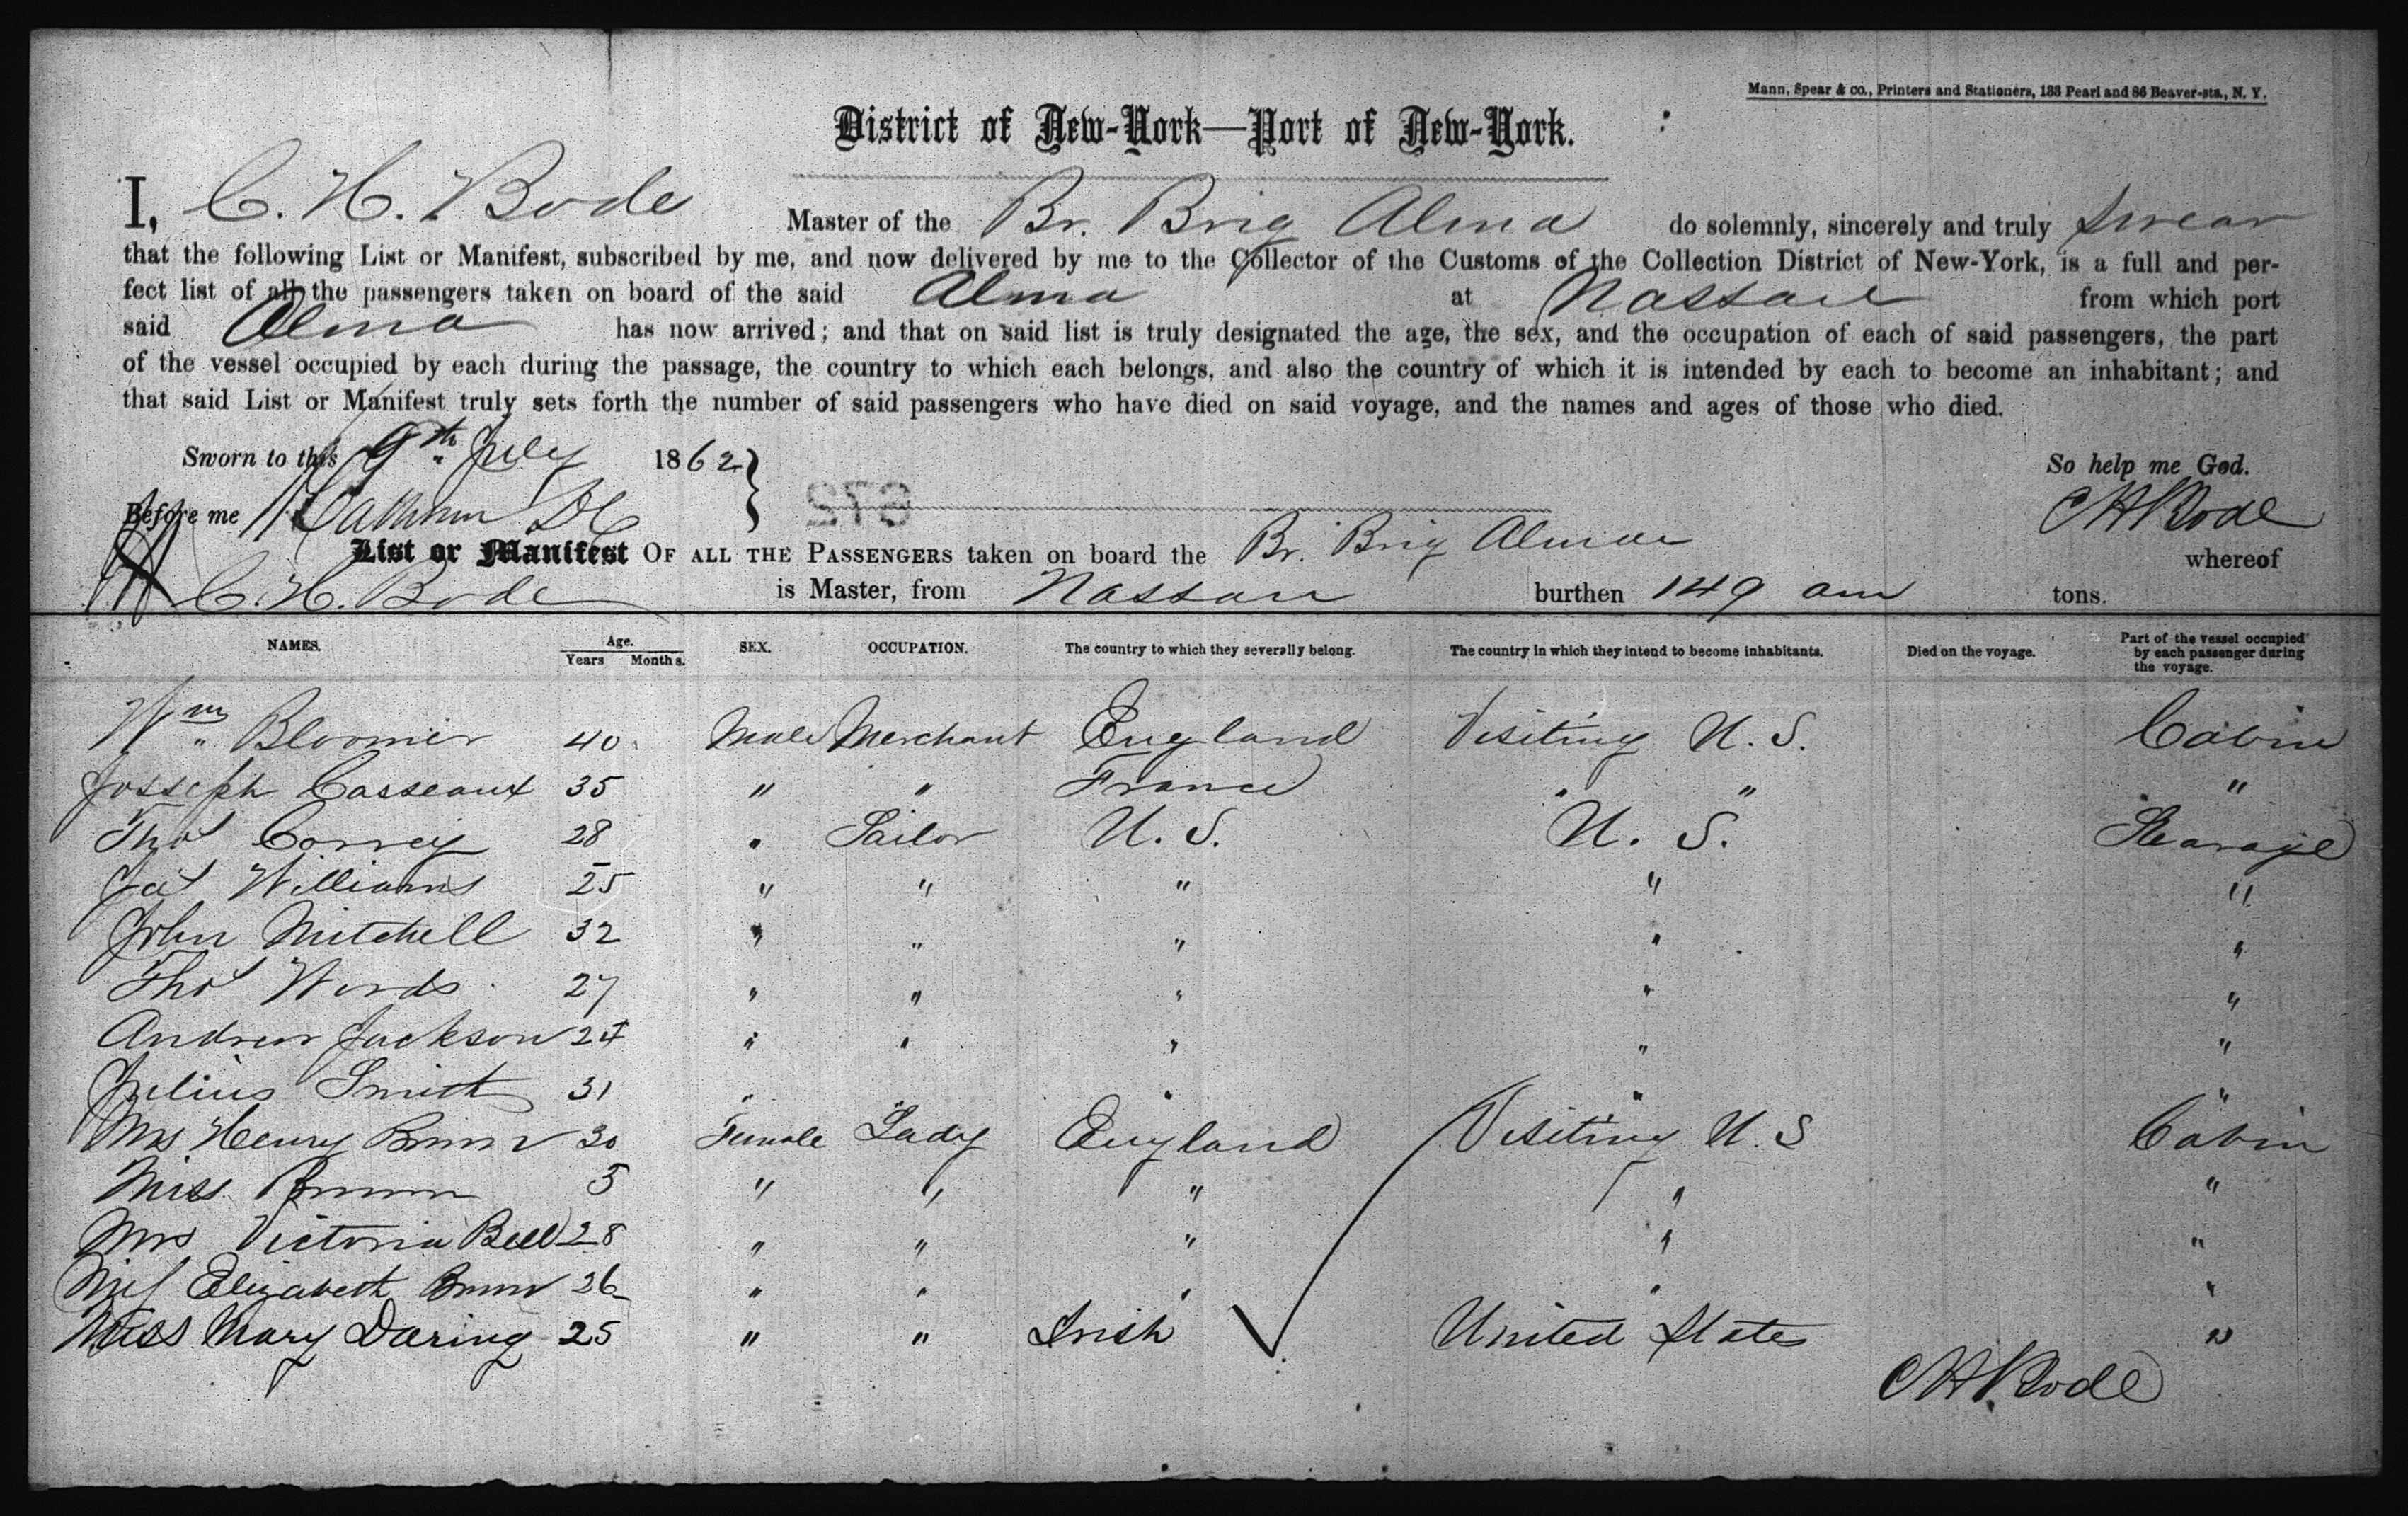 Mann, Spear & co., Printers and Stationers, 133 Pearl and 86 Beaver-sts., N. Y.
District of New-York—Port of New-York.
I, C. H. Bode Master of the Br. Brig Alma do solemnly, sincerely and truly swear
that the following List or Manifest, subscribed by me, and now delivered by me to the Collector of the Customs of the Collection District of New-York, is a full and per-
fect list of all the passengers taken on board of the said Alma at Nassau from which port
said Alma has now arrived; and that on said list is truly designated the age, the sex, and the occupation of each of said passengers, the part
of the vessel occupied by each during the passage, the country to which each belongs, and also the country of which it is intended by each to become an inhabitant; and
that said List or Manifest truly sets forth the number of said passengers who have died on said voyage, and the names and ages of those who died.
Sworn to this 9th July 1862 So help me God.
Before me CH Bode
List or Manifest OF ALL THE PASSENGERS taken on board the Br. Brig Alma whereof
C. H. Bode is Master, from Nassau burthen 149 tons.
NAMES. Age. Years Months. SEX. OCCUPATION. The country to which they severally belong. The country in which they intend to become inhabitants. Died on the voyage. Part of the vessel occupied by each passenger during the voyage.
Wm Bloomer 40 Male Merchant England Visiting U. S. Cabin
Josseph Casseaux 35 " " France " " "
Thos 28 " Sailor U. S. U. S. Stearage
Jas Williams 25 " " " " "
John Mitchell 32 " " " " "
Thos Words 27 " " " " "
Andrew Jackson 24 " " " " "
Julius Smith 31 " " " "
Mrs Henry Brown 30 Female Lady England Visiting U. S Cabin
Miss Brown 5 " " " " "
Mrs Victoria Bell 28 " " " " "
Miss Elizabeth Brown 26 " " " " "
Miss Mary Daring 25 " " Irish United States "
CH Bode